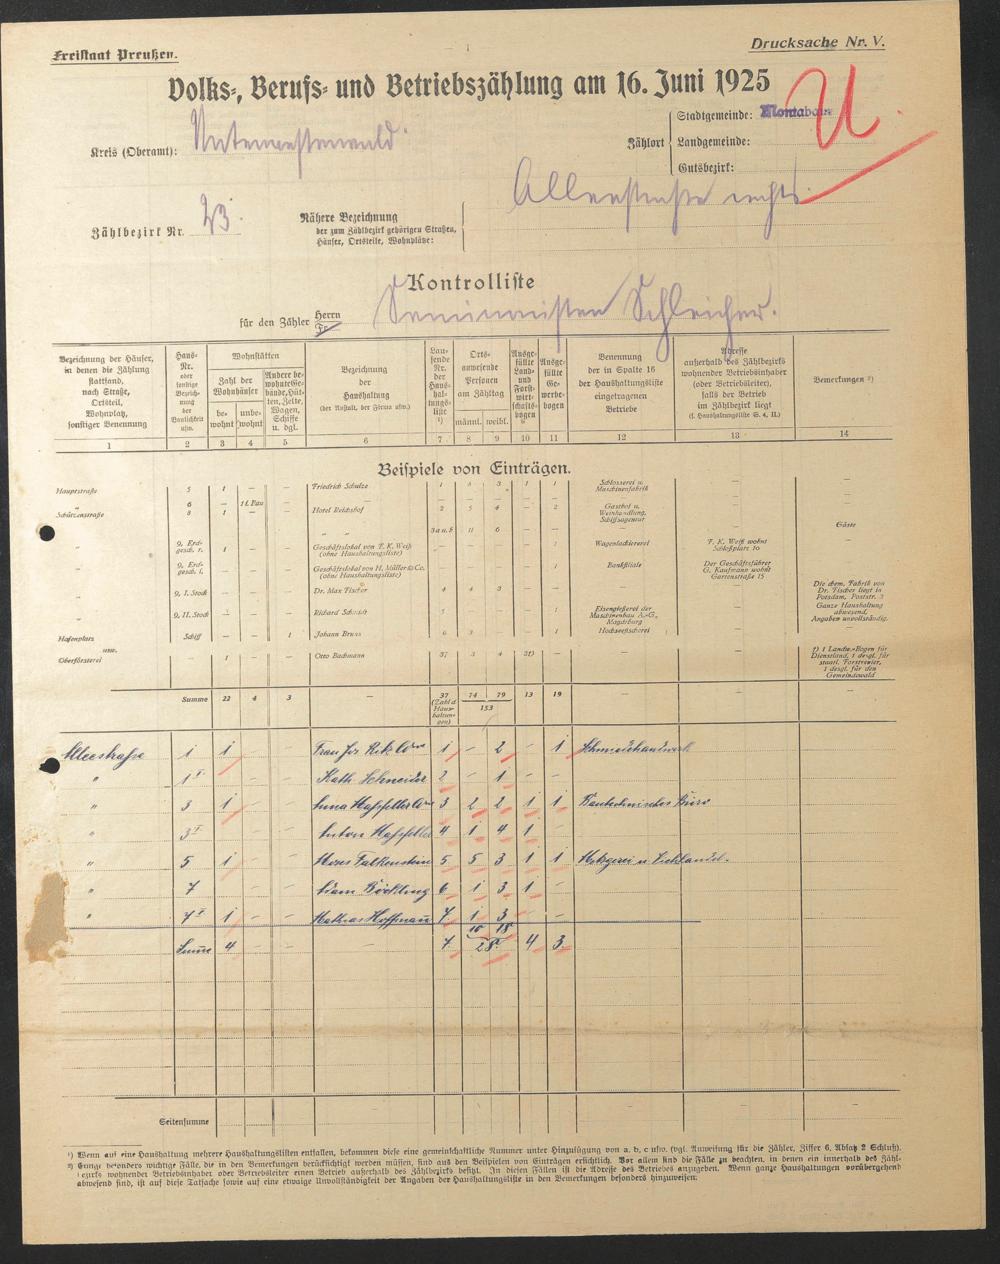 Freistaat Preußen.
Drucksache Nr. V.
Volks-, Berufs- und Betriebszählung am 16. Juni 1925
U.
Kreis (Oberamt): Unterwesterwald.
Zählort
Stadtgemeinde: Montabaur
Landgemeinde:
Gutsbezirk:
Zählbezirk Nr. 23.
Nähere Bezeichnung
der zum Zählbezirk gehörigen Straßen,
Häuser, Ortsteile, Wohnplätze:
Alleestraße rechts.
Kontrolliste
für den Zähler Herrn Seminaristen Schleicher.
Fr.
Bezeichnung der Häuser, in denen die Zählung stattfand, nach Straße, Ortsteil, Wohnplatz, sonstiger Benennung
Haus-Nr. oder sonstige Bezeichnung der Baulichkeit usw.
Wohnstätten
Zahl der Wohnhäuser
bewohnt
unbewohnt
Andere bewohnte Gebäude, Hütten, Zelte, Wagen, Schiffe u. dgl.
Bezeichnung der Haushaltung (der Anstalt, der Firma usw.)
Laufende Nr. der Haushaltungsliste ¹)
Ortsanwesende Personen am Zähltag
männl. weibl.
Ausgefüllte Land- und Forstwirtschaftsbogen
Ausgefüllte Gewerbebogen
Benennung der in Spalte 16 der Haushaltungsliste eingetragenen Betriebe
Adresse außerhalb des Zählbezirks wohnender Betriebsinhaber (oder Betriebsleiter), falls der Betrieb im Zählbezirk liegt (s. Haushaltungsliste S. 4, II.)
Bemerkungen ²)
1 2 3 4 5 6 7 8 9 10 11 12 13 14
Beispiele von Einträgen.
Hauptstraße 5 1 — — Friedrich Schulze 1 3 1 1 Schlosserei u. Maschinenfabrik — —
" 6 — 1 l. Bau — — — — — — — — —
Schützenstraße 8 1 — — Hotel Reichshof 2 5 4 — 2 Gasthof u. Weinhandlung, Schiffsagentur — —
" — — — " " 3a u. b 11 6 — — — — Gäste
" 9, Erdgesch. r. 1 — — Geschäftslokal von F. K. Weiß (ohne Haushaltungsliste) — — — — 1 Wagenlackiererei F. K. Weiß wohnt Schloßplatz 10 —
" 9, Erdgesch. l. — — — Geschäftslokal von H. Müller & Co. (ohne Haushaltungsliste) — — — — 1 Bankfiliale Der Geschäftsführer G. Kaufmann wohnt Gartenstraße 15 —
" 9, I. Stock — — — Dr. Max Fischer 4 4 3 — — — — Die chem. Fabrik von Dr. Fischer liegt in Potsdam, Poststr. 3
" 9, II. Stock — — — Richard Schmidt 5 — — — 1 Eisengießerei der Maschinenbau A.-G., Magdeburg — Ganze Haushaltung abwesend, Angaben unvollständig.
Hafenplatz Schiff — — 1 Johann Bruns 6 3 1 — 1 Hochseefischerei — —
usw.
Oberförsterei — 1 — — Otto Bachmann 37 3 4 2†) — — — †) 1 Landw.-Bogen für Dienstland, 1 desgl. für staatl. Forstrevier, 1 desgl. für den Gemeindewald
Summe 22 4 3 — 37 (Zahl d. Haushaltungen) 74 79 13 19 — — —
153
Alleestraße 1 1 - - 1 - 2 - 1 Schmiedhandwerk
" 1 I - - Kath. Schneider 2 - 1 -
" 3 1 - - Anna 3 2 2 1 1 Bautechnisches Büro
" 3 I - - Anton 4 1 4 1 -
" 5 1 - - Moses Falkenstein 5 5 3 1 1 Metzgerei u. Viehhandel.
" 7 - - Adam Böckling 6 1 3 1 -
" 7 I 1 - - Mathias Hoffmann 7 1 3 - -
10 18
Summe 4 - - 7. 28. 4 3.
Seitensumme — — — — —
¹) Wenn auf eine Haushaltung mehrere Haushaltungslisten entfallen, bekommen diese eine gemeinschaftliche Nummer unter Hinzufügung von a, b, c usw. (vgl. Anweisung für die Zähler, Ziffer 6, Absatz 2 Schluß).
²) Einige besonders wichtige Fälle, die in den Bemerkungen berücksichtigt werden müssen, sind aus den Beispielen von Einträgen ersichtlich. Vor allem sind die Fälle zu beachten, in denen ein innerhalb des Zähl-
bezirks wohnender Betriebsinhaber oder Betriebsleiter einen Betrieb außerhalb des Zählbezirks besitzt. In diesen Fällen ist die Adresse des Betriebes anzugeben. Wenn ganze Haushaltungen vorübergehend
abwesend sind, ist auf diese Tatsache sowie auf eine etwaige Unvollständigkeit der Angaben der Haushaltungsliste in den Bemerkungen besonders hinzuweisen.